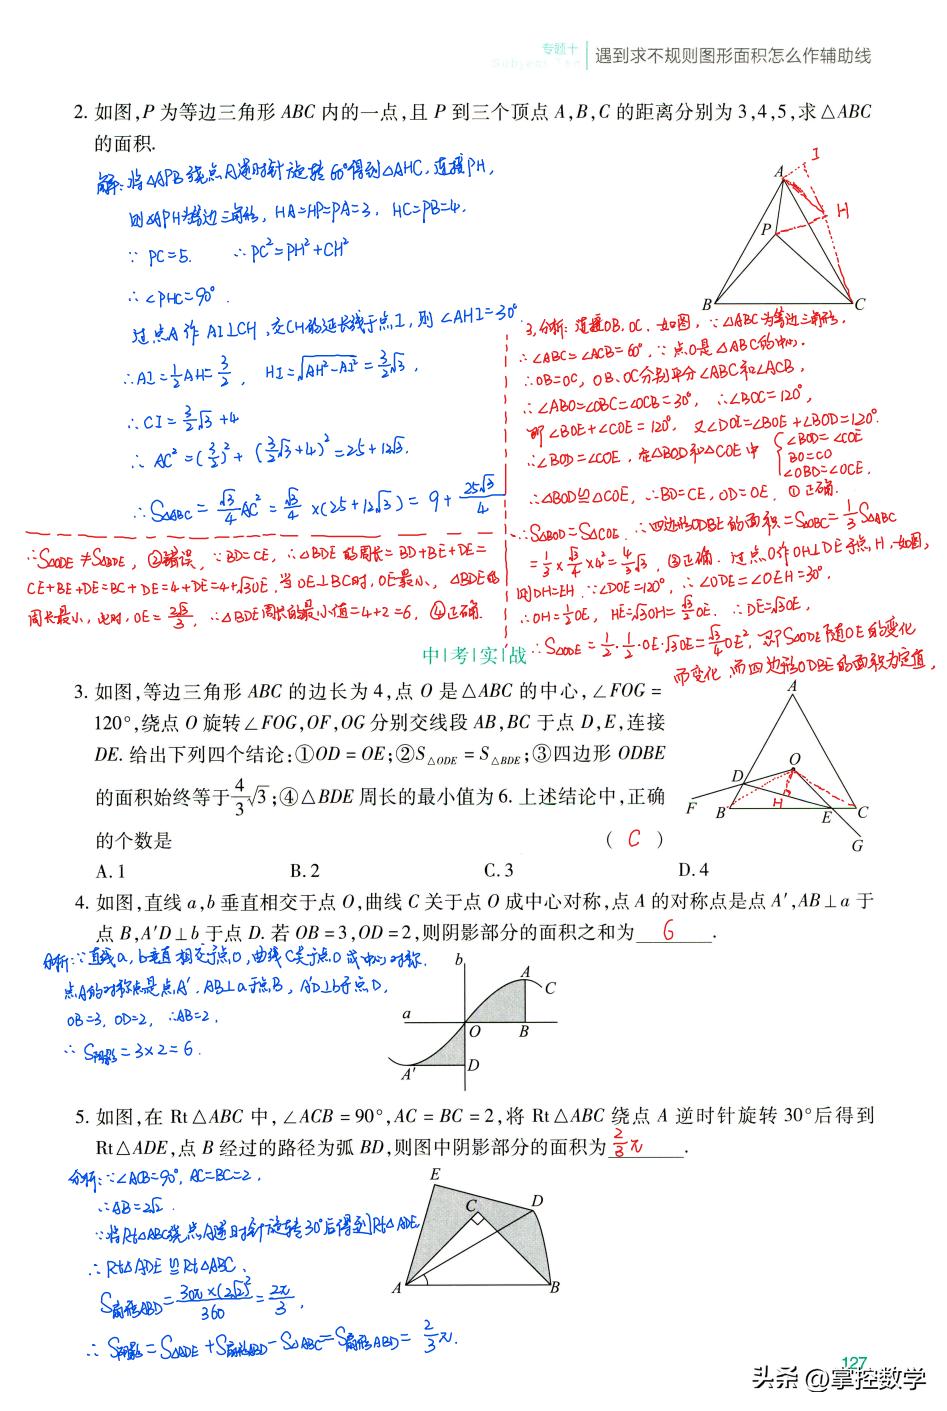 专题十 遇到求不规则图形面积怎么作辅助线
Subject Ten
2. 如图,P 为等边三角形 ABC 内的一点,且 P 到三个顶点 A,B,C 的距离分别为 3,4,5,求△ABC
的面积.
解:将△APB绕点A逆时针旋转60°得到△AHC,连接PH,
则△APH为等边三角形,HA=HP=PA=3,HC=PB=4.
∵PC=5. ∴PC²=PH²+CH²
∴∠PHC=90°.
过点A作AI⊥CH,交CH的延长线于点I,则∠AHI=30°.
∴AI=1/2AH=3/2, HI=√(AH²-AI²)=3/2√3,
∴CI=3/2√3+4
∴AC²=(3/2)²+(3/2√3+4)²=25+12√3.
∴S△ABC=√3/4AC²=√3/4×(25+12√3)=9+25√3/4
A I H P B C
3,分析:连接OB,OC,如图,∵△ABC为等边三角形,
∴∠ABC=∠ACB=60°,∵点O是△ABC的中心.
∴OB=OC,OB、OC分别平分∠ABC和∠ACB,
∴∠ABO=∠OBC=∠OCB=30°,∴∠BOC=120°,
即∠BOE+∠COE=120°,又∠DOE=∠BOE+∠BOD=120°
∴∠BOD=∠COE,在△BOD和△COE中 {∠BOD=∠COE
BO=CO
∠OBD=∠OCE,
∴△BOD≌△COE,∴BD=CE,OD=OE,①正确.
∴S△BOD=S△COE ∴四边形ODBE的面积=S△OBC=1/3S△ABC
=1/3×√3/4×4²=4/3√3,③正确.过点O作OH⊥DE于点H,如图,
则DH=EH,∵∠DOE=120°,∴∠ODE=∠OEH=30°,
∴OH=1/2OE, HE=√3OH=√3/2OE.∴DE=√3OE,
∴S△ODE=1/2·1/2·OE·√3OE=√3/4OE²,即S△ODE随OE的变化
而变化,而四边形ODBE的面积为定值,
∴S△ODE≠S△BDE,②错误,∵BD=CE,∴△BDE的周长=BD+BE+DE=
CE+BE+DE=BC+DE=4+DE=4+√3OE,当OE⊥BC时,OE最小,△BDE的
周长最小,此时,OE=2√3/3,∴△BDE周长的最小值=4+2=6,④正确.
中|考|实|战
3. 如图,等边三角形 ABC 的边长为 4,点 O 是△ABC 的中心,∠FOG =
120°,绕点 O 旋转∠FOG,OF,OG 分别交线段 AB,BC 于点 D,E,连接
DE. 给出下列四个结论:①OD = OE;②S△ODE = S△BDE;③四边形 ODBE
的面积始终等于4/3√3;④△BDE 周长的最小值为 6. 上述结论中,正确
的个数是 ( C )
A. 1 B. 2 C. 3 D. 4
A O D F B H E C G
4. 如图,直线 a,b 垂直相交于点 O,曲线 C 关于点 O 成中心对称,点 A 的对称点是点 A′,AB⊥a 于
点 B,A′D⊥b 于点 D. 若 OB = 3,OD = 2,则阴影部分的面积之和为 6 .
分析:∵直线a,b垂直相交于点O,曲线C关于点O成中心对称.
点A的对称点是点A′,AB⊥a于点B,A′D⊥b于点D,
OB=3,OD=2,∴AB=2,
∴S阴影=3×2=6.
b A C a O B D A′
5. 如图,在 Rt△ABC 中,∠ACB = 90°,AC = BC = 2,将 Rt△ABC 绕点 A 逆时针旋转 30°后得到
Rt△ADE,点 B 经过的路径为弧 BD,则图中阴影部分的面积为 2/3π .
分析:∵∠ACB=90°,AC=BC=2,
∴AB=2√2.
∵将Rt△ABC绕点A逆时针旋转30°后得到Rt△ADE,
∴Rt△ADE≌Rt△ABC,
S扇形ABD=30π×(2√2)²/360=2π/3,
∴S阴影=S△ADE+S扇形ABD-S△ABC=S扇形ABD=2/3π.
E C D A B
127
头条 @掌控数学